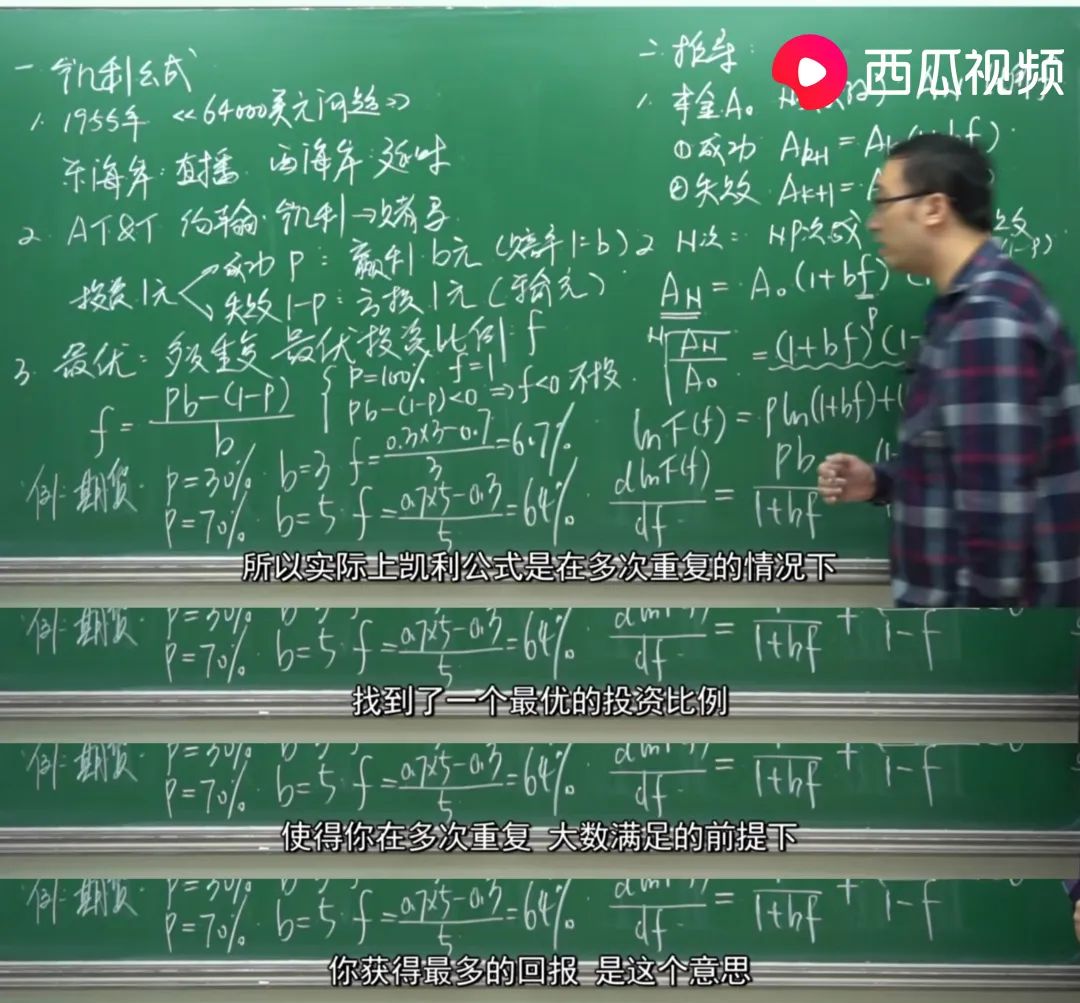 西瓜视频
一 凯利公式
1. 1955年 《64000美元问题》
东海岸:直播 西海岸:延时
2. AT&T 约翰·凯利→赌马
投资1元
成功 P: 赢利 b元 (赔率1=b)
失败 1-P: 亏损1元 (输光)
3. 最优: 多次重复 最优投资比例 f
f = (Pb-(1-P))/b
P=100% f=1
Pb-(1-P)<0 ⇒ f<0 不投
例:期货 P=30% b=3 f=(0.3×3-0.7)/3=6.7%
P=70% b=5 f=(0.7×5-0.3)/5=64%
二 推导:
1. 本金A₀
①成功 A_{k+1}=
②失败 A_{k+1}=
2 N次: NP次
A_N = A₀(1+bf)
ᴺ√(A_N/A₀) = (1+bf)ᴾ(1-
lnF(f) = Pln(1+bf)+(
dlnF(f)/df = Pb/(1+bf)
所以实际上凯利公式是在多次重复的情况下
P=70% b=5 f=(0.7×5-0.3)/5=64% df = 1+bf + 1-f
找到了一个最优的投资比例
例:期货 P=70% b=5 f=(0.7×5-0.3)/5=64% df = 1+bf + 1-f
使得你在多次重复 大数满足的前提下
例:期货 P=70% b=5 f=(0.7×5-0.3)/5=64% df = 1+bf + 1-f
你获得最多的回报 是这个意思